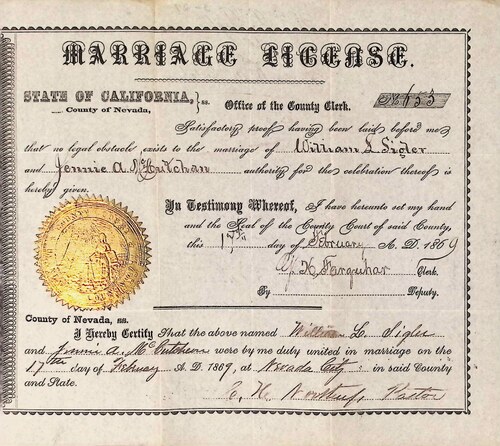 MARRIAGE LICENSE.
STATE OF CALIFORNIA, } ss.
County of Nevada,
Office of the County Clerk.
Satisfactory proof having been laid before me
that no legal obstacle exists to the marriage of William L Sigler
and Jennie A McCutchan authority for the celebration thereof is
hereby given.
In Testimony Whereof, I have hereunto set my hand
and the Seal of the County Court of said County,
this 17th day of February A. D. 1869
K Farquhar Clerk.
By Deputy.
County of Nevada, ss.
I Hereby Certify That the above named William L. Sigler
and Jennie A. McCutcheon were by me duly united in marriage on the
17th day of February A. D. 1869, at Nevada City, in said County
and State.
Pastor